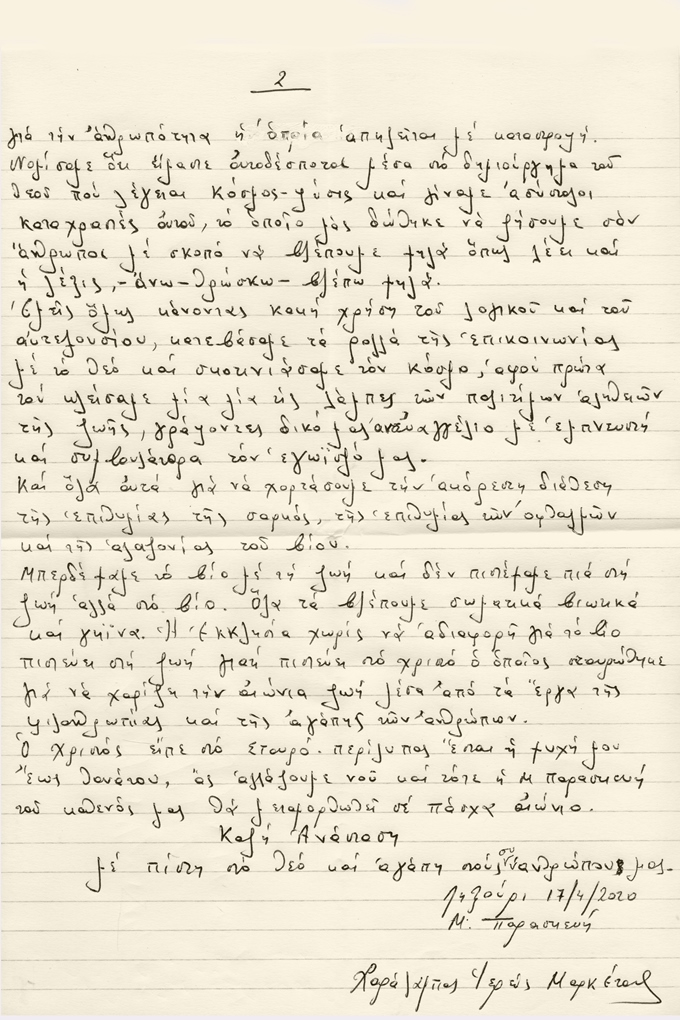 2
γιά τήν ἀνθρωπότητα ἡ ὁποία ἀπειλεῖται μέ καταστροφή.
Νομίσαμε ὅτι εἴμαστε αὐτοδέσποτοι μέσα στό δημιούργημα τοῦ
Θεοῦ πού λέγεται Κόσμος-φύσις καί γίναμε ἀσύστολοι
καταχραστές αὐτοῦ, τό ὁποῖο μᾶς δώθηκε νά ζήσουμε σάν
ἄνθρωποι μέ σκοπό νά βλέπουμε ψηλά ὅπως λέει καί
ἡ λέξις, -ἄνω-θρώσκω- βλέπω ψηλά.
Ἐμεῖς ὅμως κάνοντας κακή χρήση τοῦ λογικοῦ καί τοῦ
αὐτεξουσίου, κατεβάσαμε τά ρολλά τῆς ἐπικοινωνίας
μέ τό Θεό καί σκοτινιάσαμε τόν κόσμο, ἀφοῦ πρῶτα
τοῦ κλείσαμε μία μία τίς λάμπες τῶν πολιτίμων ἀληθειῶν
τῆς ζωῆς, γράφοντες δικό μας εὐαγγέλιο μέ ἐμπνευστή
καί συμβουλάτορα τόν ἐγωϊσμό μας.
Καί ὅλα αὐτά γιά νά χορτάσουμε τήν ἀκόρεστη διάθεση
τῆς ἐπιθυμίας τῆς σαρκός, τῆς ἐπιθυμίας τῶν ὀφθαλμῶν
καί τῆς ἀλαζονίας τοῦ βίου.
Μπερδέψαμε τό βίο μέ τή ζωή καί δέν πιστέψαμε πιά στή
ζωή ἀλλά στό βίο. Ὅλα τά βλέπουμε σωματικά βιωτικά
καί γήϊνα. Ἡ Ἐκκλησία χωρίς νά ἀδιαφορῆ γιά τό βίο
πιστεύει στή ζωή γιατί πιστεύει στό χριστό ὁ ὁποῖος σταυρώθηκε
γιά νά χαρίζη τήν αἰώνια ζωή μέσα ἀπό τά ἔργα τῆς
φιλανθρωπίας καί τῆς ἀγάπης τῶν ἀνθρώπων.
Ὁ Χριστός εἶπε στό Σταυρό. περίλυπος ἔσται ἡ ψυχή μου
ἕως θανάτου, ἄς ἀλλάξουμε νοῦ καί τότε ἡ Μ Παρασκευή
τοῦ καθενός μας θά μεταμορθωθεῖ σέ πάσχα αἰώνιο.
Καλή Ἀνάσταση
μέ πίστη στό Θεό καί ἀγάπη στούς συνανθρώπους μας-
Ληξούρι 17/4/2020
Μ. Παρασκευή
Χαράλαμπος Ἱερεύς Μαρκέτος